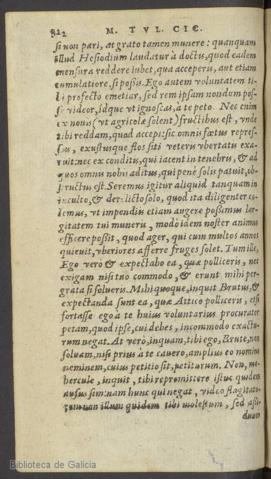 812 M. TVL. CIC.
si non pari, at grato tamen munere: quanquam
illud Hesiodium laudatur à doctis, quod eadem
mensura reddere iubet, qua acceperis, aut etiam
cumulatiore, si possis. Ego autem voluntatem ti-
bi profecto emetiar, sed rem ipsam nondum pos-
se videor, idque vt ignoscas, à te peto. Nec enim
ex nouis (vt agricolæ solent) fructibus est, vnde
tibi reddam, quod accepi: sic omnis fœtus repres-
sus, exustusque flos siti veteris vbertatis exa-
ruit: nec ex conditis, qui iacent in tenebris, & ad
quos omnis nobis aditus, qui penè solis patuit, ob-
structus est. Seremus igitur aliquid tanquam in
inculto, & derelicto solo, quod ita diligenter co-
lemus, vt impendiis etiam augere possimus lar-
gitatem tui muneris, modò idem noster animus
efficere possit, quod ager, qui cum multos annos
quieuit, vberiores afferre fruges solet. Tum ille,
Ego verò & expectabo ea, quæ polliceris, nec
exigam nisi tuo commodo, & erunt mihi per-
grata si solueris. Mihi quoque, inquit Brutus, &
expectanda sunt ea, quæ Attico polliceris, etsi
fortasse ego à te huius voluntarius procurator
petam, quod ipse, cui debes, incommodo exactu-
rum negat. At verò, inquam, tibi ego, Brute, non
soluam, nisi prius à te cauero, amplius eo nomine
neminem, cuius petitio sit, petiturum. Non, me-
hercule, inquit, tibi repromittere istuc quidem
ausus sim: nam hunc qui negat, video flagitato-
rem non illum quidem tibi molestum, sed assi-
duum
Biblioteca de Galicia